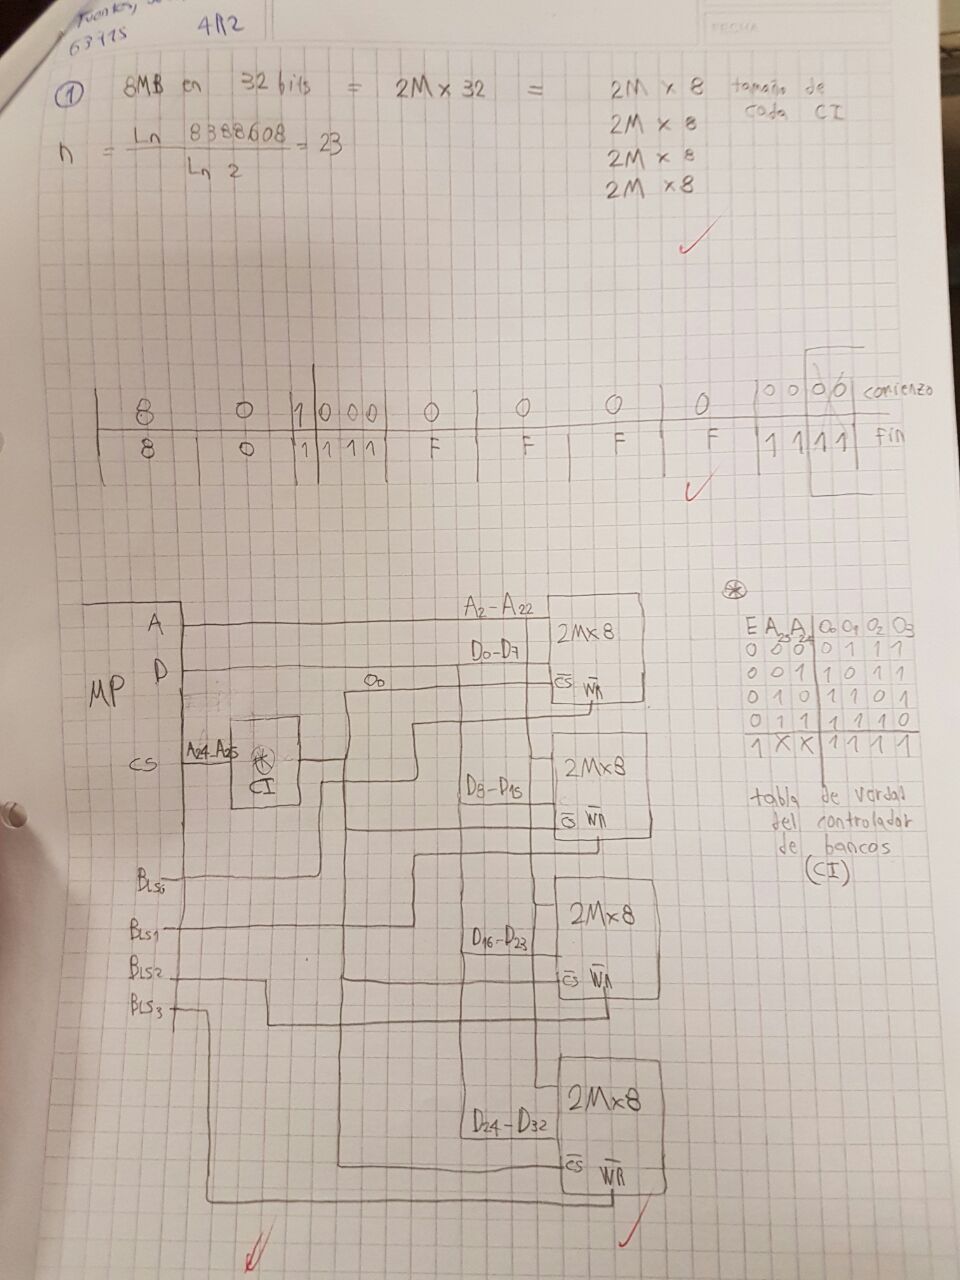 63775 4R2
FECHA
① 8MB en 32 bits = 2M x 32 = 2M x 8 tamaño de
2M x 8 cada CI
2M x 8
2M x 8
n = Ln 8388608 / Ln 2 = 23
8 0 1 0 0 0 0 0 0 0 0 0 0 0 comienzo
8 0 1 1 1 1 F F F F 1 1 1 1 Fin
MP
A A2-A22 2Mx8
D D0-D7
O0 CS WR
CS A24-A25 ⊛ CI
D8-D15 2Mx8
CS WR
BLS0
BLS1
BLS2
BLS3
D16-D23 2Mx8
CS WR
D24-D32 2Mx8
CS WR
⊛
E A25 A24 O0 O1 O2 O3
0 0 0 0 1 1 1
0 0 1 1 0 1 1
0 1 0 1 1 0 1
0 1 1 1 1 1 0
1 X X 1 1 1 1
tabla de verdad
del controlador
de bancos
(CI)